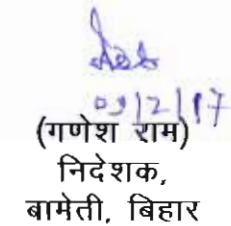 09/2/17
(गणेश राम)
निदेशक,
बामेती, बिहार